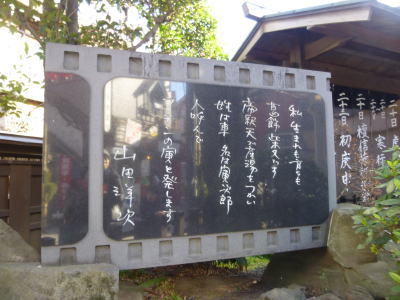 初庚申
私 生まれも育ちも
葛飾柴又です
帝釈天で産湯をつかい
姓は車 名は寅次郎
人呼んで
フーテンの寅と発します
山田洋次